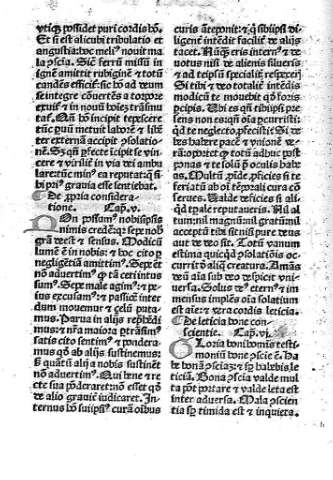 vtiqȝ possidet puri cordis hō.
Et si est alicubi tribulatio et
angustia: hoc meliꝰ nouit ma
la ꝯscia. Sic ferrū missū in
ignē amittit rubiginē et totū
candēs efficit̄: sic hō ad deum
se integre cōuertēs a torpore
exuit̄ et in nouū hoīeȝ trāsmu
tat̄. Qn̄ hō incipit tepesce̅
tūc metuit laborē et libē
ter externā accipit ꝯsolatio
nē. Sȝ qn̄ ꝑfecte īcipit se vin
cere et viriliter in via dei ambu
lare: tūc minꝰ ea reputat: q̄ si
bi priꝰ grauia esse sentiebat.
De ꝓpria considera
tione. Cap. v.
Non possumꝰ nobisipsis
nimis credere: qr̄ sepe nobꝭ
gr̄a deest et sensus. Modicū
lumē ē in nobis: et hoc cito ꝑ
negligentiā amittimꝰ. Sepe et
nō aduertimꝰ ꝙ tā ceci intꝰ
sumꝰ. Sepe male agimꝰ: et pe
ius excusamꝰ: et passione inter
dum mouemur et ȥelū puta
mus. Parua in alijs rephēdi
mus: et nr̄a maiora ꝑtrāsimꝰ
satis cito sentimꝰ et pondera
mus qd̄ ab alijs sustinemus:
sȝ quātū alij a nobis sustinēt
nō aduertimꝰ. Qui bene et re
cte sua pōderaret: nō esset qd̄
de alio grauiter iudicaret. In
ternus hō suiipsiꝰ curam oībus
curis anteponit: et q̄ sibiipsi di
ligenter intēdit facilr̄ de alijs
tacet. Nūqȝ eris internꝰ et de
uotus nisi de alienis silueris
et ad teipsū specialiter respexeris
Si tibi et deo totaliter intēdis
modicū te mouebit qd̄ foris
ꝑcipis. Vbi es qn̄ tibiipsi p̄se
ns non es: et qn̄ oīa ꝑcurristi:
qd te neglecto ꝓfecisti: Si de
bes habere pacē et vnionē ve
rā: oportet ꝙ totū adhuc post
ponas et te solū p̄ oculis habe
as. Multū ꝓinde ꝓficies si te
feriatū ab oī tēporali cura cō
serues. Valde deficies si ali
qd tꝑale reputaueris. Nil al
tum: nil magnū: nil gratū: nil
acceptū tibi sit nisi pure deus
aut de deo sit. Totū vanum
estima quicqd ꝯsolatiōis oc
currit d̄ aliq̄ creatura. Amās
deū aīa sub deo despicit vni
uersa. Solus deꝰ eternꝰ et im
mensus implēs oīa solatium
est aīe: et vera cordis leticia.
De leticia bone con
scientie. Cap. vi.
Gloria boni hoīs: testi
moniū bone ꝯscie ē. Ha
be bonā ꝯsciāȝ: et sꝑ habebis le
ticiā. Bona ꝯscia valde mul
ta pōt portare et valde leta est
inter aduersa. Mala ꝯscien
tia sꝑ timida est et inquieta.